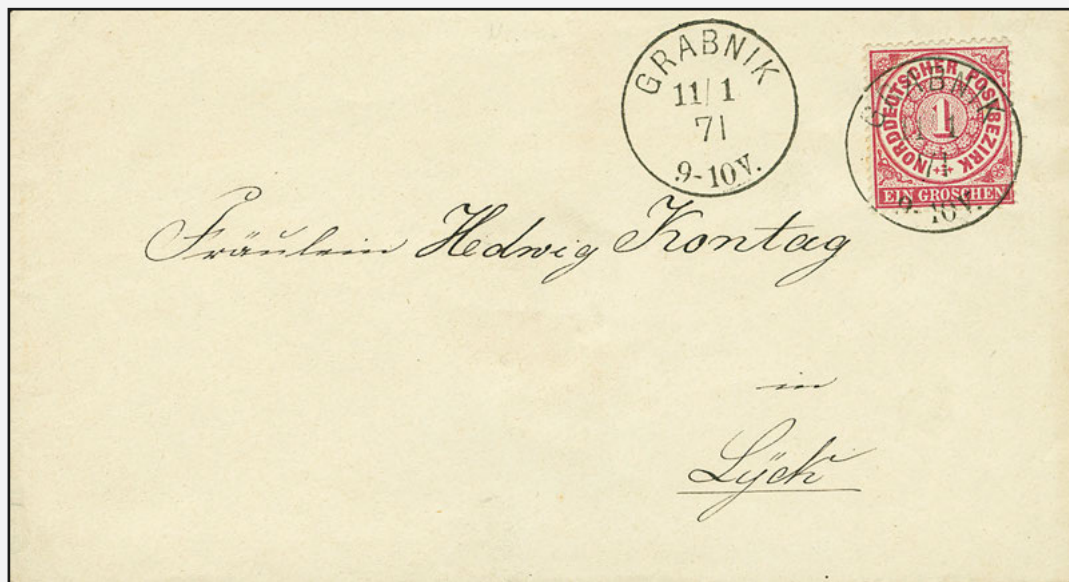 GRABNIK
11/1
71
9-10V.
NORDDEUTSCHER POSTBEZIRK
1
EIN GROSCHEN
9-10V.
Fräulein Hedwig Kontag
in
Lÿck